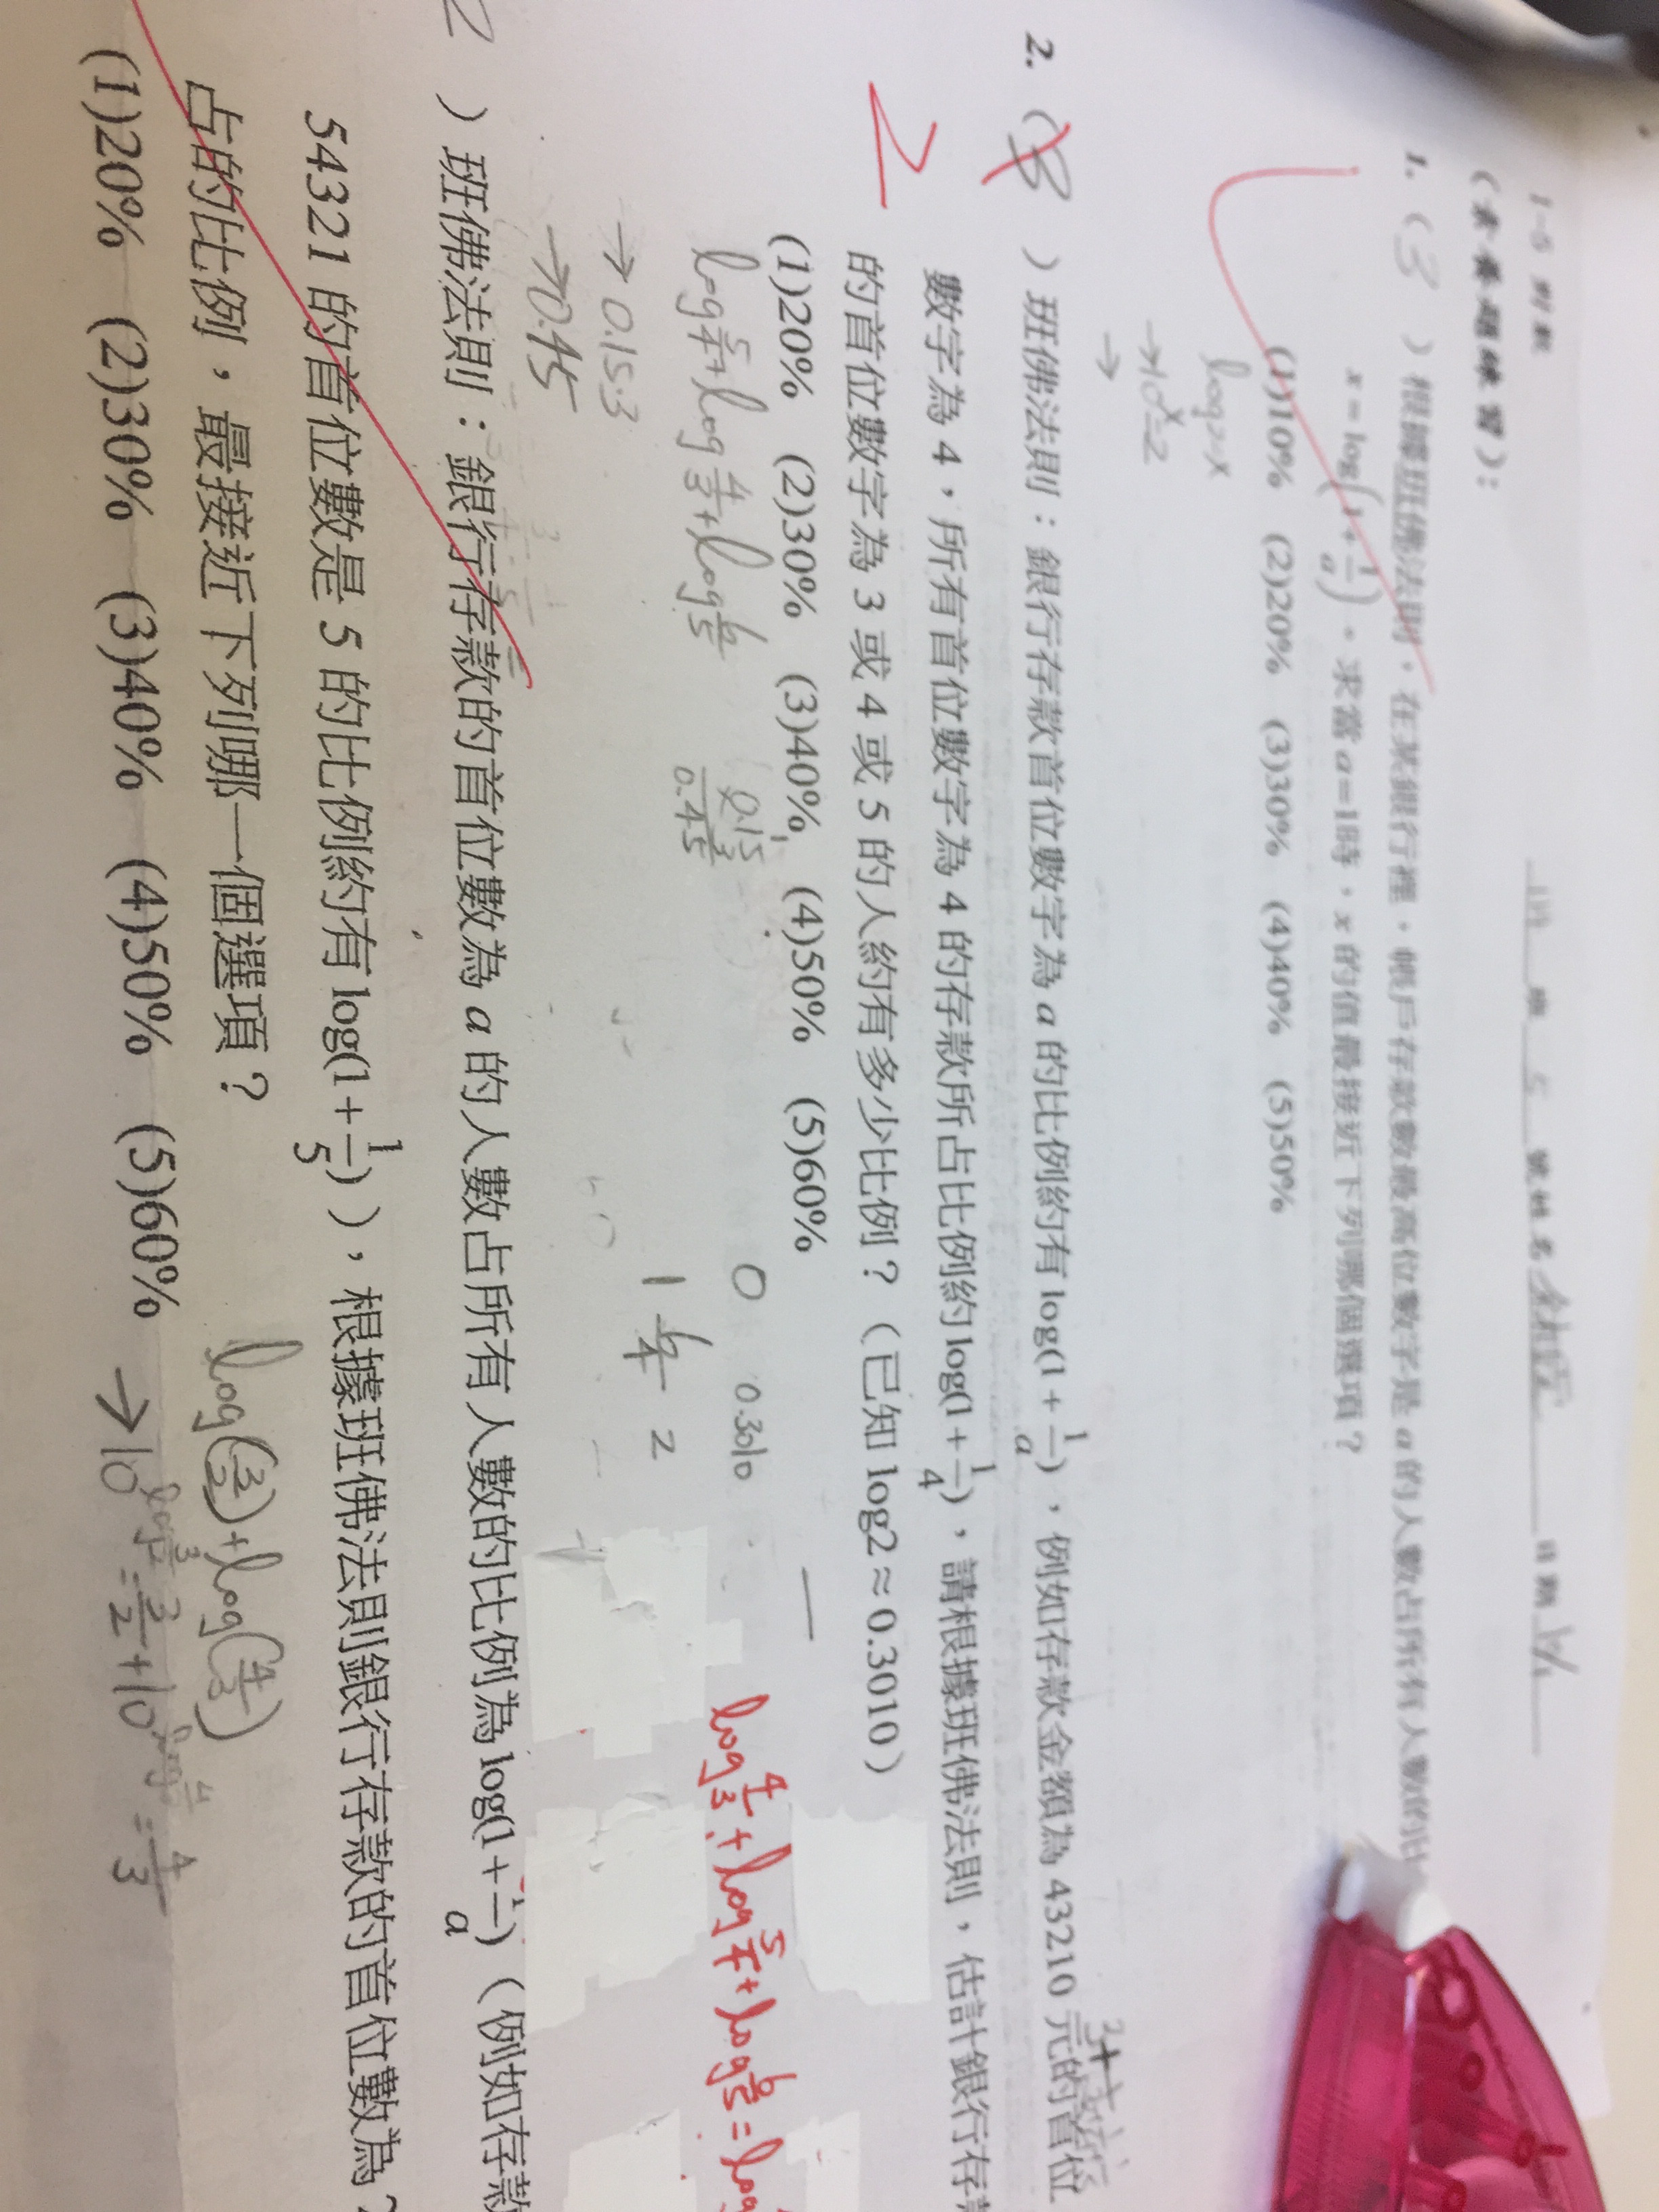 1-5 對數
班 5 號 姓名 日期
(素養題練習):
1. (3) 根據班佛法則,在某銀行裡,帳戶存款數最高位數字是 a 的人數占所有人數的比
x = log(1+1/a)。求當 a=1時,x 的值最接近下列哪個選項?
(1)10% (2)20% (3)30% (4)40% (5)50%
log2=x
→10^x=2
→
2. (3) 班佛法則:銀行存款首位數字為 a 的比例約有 log(1+1/a),例如存款金額為 43210 元的首位
2
數字為 4,所有首位數字為 4 的存款所占比例約 log(1+1/4),請根據班佛法則,估計銀行存
的首位數字為 3 或 4 或 5 的人約有多少比例?(已知 log2≈0.3010)
(1)20% (2)30% (3)40% (4)50% (5)60%
log 5/4 + log 4/3 + log 6/5
0.15
0.45
0 0.3010
1 6/4 2
log 4/3 + log 5/4 + log 6/5 = log
→ 0.15·3
→ 0.45
2 )班佛法則:銀行存款的首位數為 a 的人數占所有人數的比例為 log(1+1/a)(例如存款
54321 的首位數是 5 的比例約有 log(1+1/5)),根據班佛法則銀行存款的首位數為
占的比例,最接近下列哪一個選項?
log(3/2)+log(4/3)
(1)20% (2)30% (3)40% (4)50% (5)60%
→10^log 3/2 = 3/2 + 10^log 4/3 = 4/3